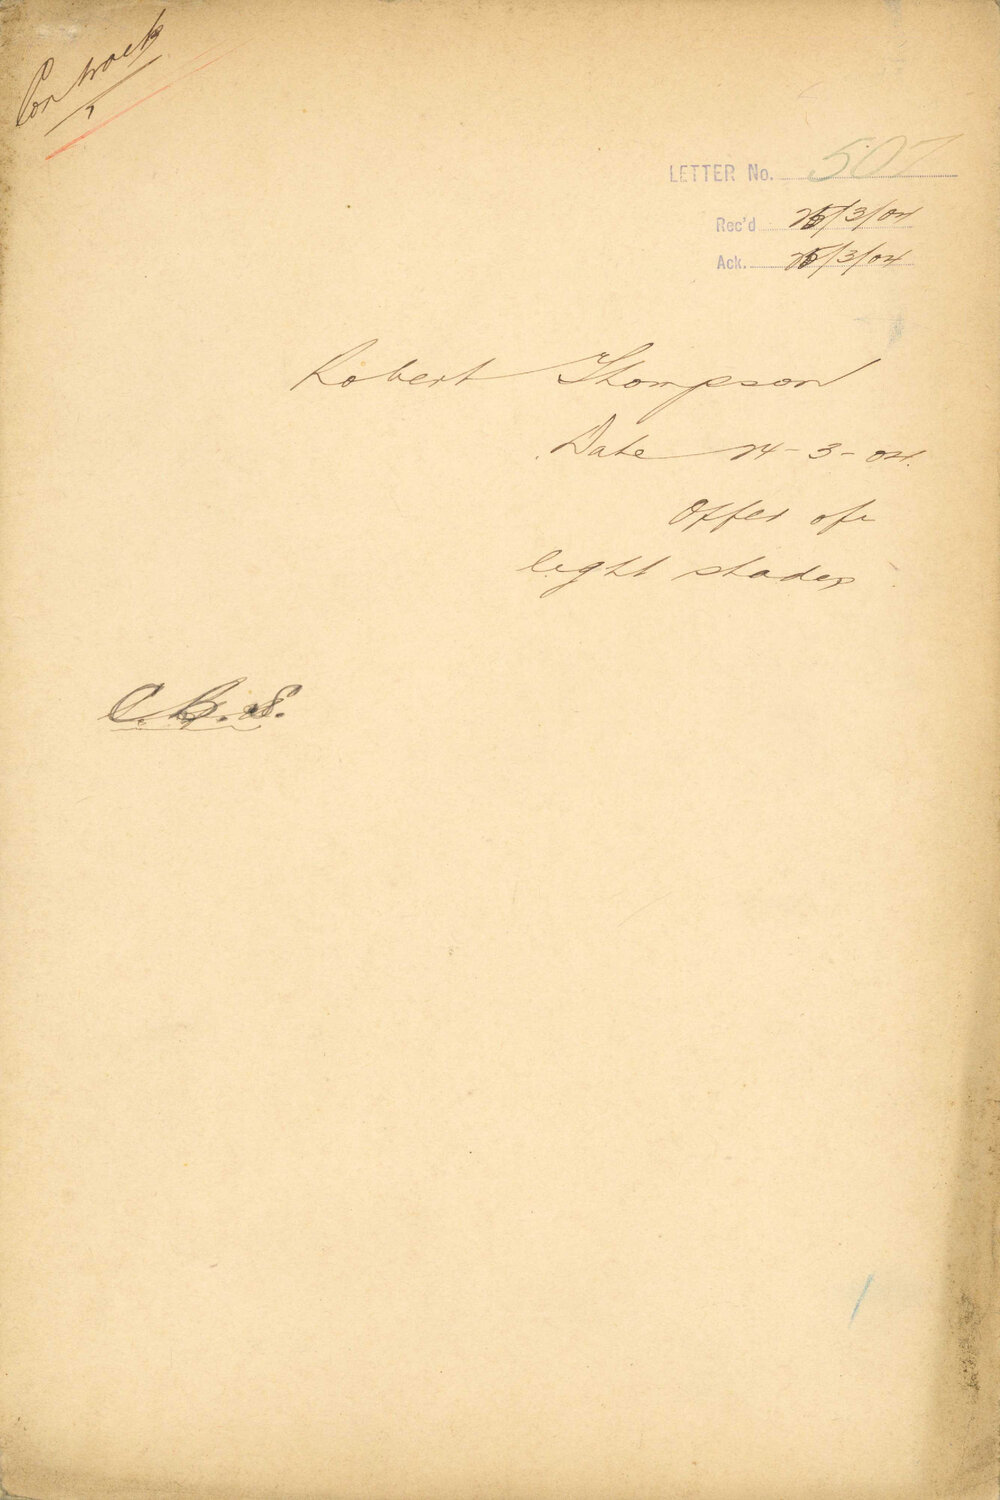 Contracts
LETTER No. 507
Rec'd 25/3/04
Ack. 25/3/04
Robert Thompson
Date 24-3-04.
Offer of
light shades